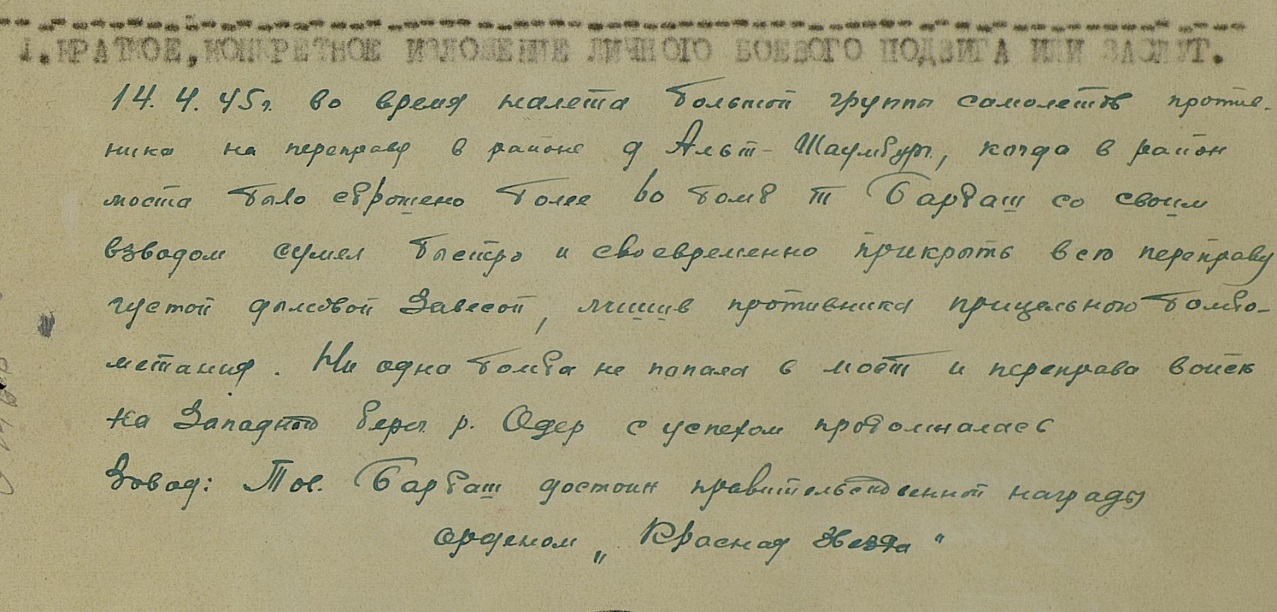 1. КРАТКОЕ, КОНКРЕТНОЕ ИЗЛОЖЕНИЕ ЛИЧНОГО БОЕВОГО ПОДВИГА ИЛИ ЗАСЛУГ.
14. 4. 45г. во время налета большой группы самолетов против-
ника на переправу в районе д Альт-Шаумбург, когда в район
моста было сброшено более 60 бомб т Барбаш со своим
взводом сумел быстро и своевременно прикрыть всю переправу
густой дымовой завесой, лишив противника прицельного бомбо-
метания. Ни одна бомба не попала в мост и переправа войск
на Западной берег р. Одер с успехом продолжалась
Вывод: Тов. Барбаш достоин правительственной награды
орденом „Красная звезда"